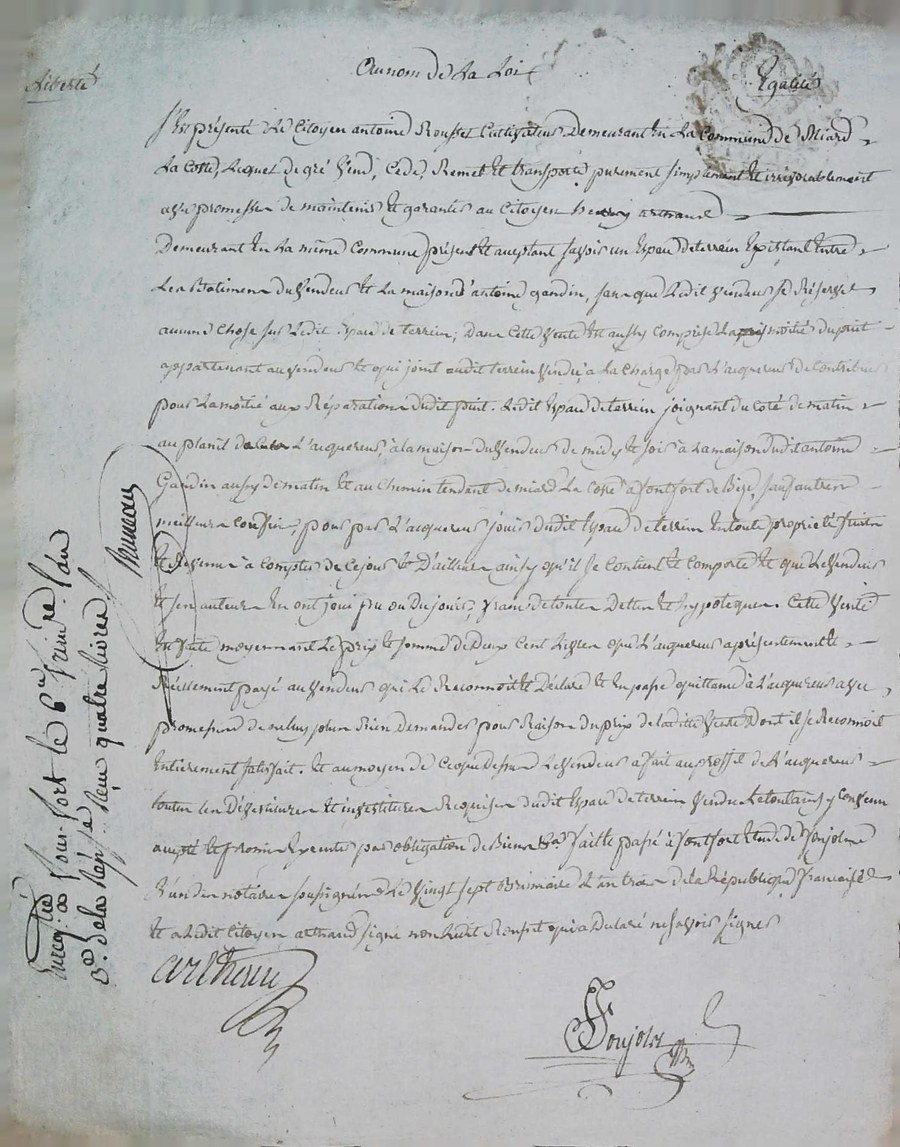 Liberté
Au nom de La Loi
Egalité
S'est présenté Le Citoyen antoine Rousset Cultivateur Demeurant En La Commune de Miard
La Coste, Lequel de gré Vend, Cede, Remet et transporte purement simplement et irrévocablement
avec promesse de maintenir et garantir au Citoyen artraud
Demeurant En La même Commune présent et aceptant savoir un Espace de terrein Existant Entre
Les Batimens du Vendeur et La maison d'antoine gandin, sans que Ledit Vendeur se Réserve
aucune Chose sur Ledit Espace de terrein; Dans Cette Vente est aussy Comprise La moitié du puit
appartenant au vendeur et qui joint audit terrein Vendu, à La Charge par L'acquereur de Contribuer
pour La moitié aux Réparations dudit puit. Ledit Espace de terrein joignant du coté de matin
au L'acquereur, à la maison du Vendeur de midy et soir à La maison dudit antoine
Gandin aussy de matin et au Chemin tendant de miard La Coste à fontfort de Bize, sauf autres
meilleurs Confins, pour par L'acquereur jouir dudit Espace de terrein En toute proprieté
et Revenus à Compter de Ce jour et D'ailleurs ainsy qu'il se Contient et Comporte et que Le Vendeur
et ses auteurs En ont joui pu ou du jouir, franc de toutes Dettes et hypoteques. Cette Vente
est faite moyennant Le prix et somme de Deux Cent Livres que L'acquereur a présentement et
Réellement payé au Vendeur qui Le Reconnoit et Déclare et En passe quittance à L'acquereur avec
promesse de ne luy jamais Rien Demander pour Raison du prix de ladite Vente Dont il se Reconnoit
Entierement satisfait. Et au moyen de Ce que Dessus Le Vendeur a fait au proffit de L'acquereur
toutes Les Dévestitures et investitures Requises dudit Espace de terrein Vendu
accepté et promis par obligation de Biens fait et passé à fontfort Etude de Ponjolas
L'un des notaires soussignés Le Vingt sept Brumaire L'an trois de la République francaise
et a Ledit Citoyen artraud signé non Ledit Rousset qui a Declaré ne savoir signer
artheau
Ponjolas
Enregtré à Fonfort le 6 frimre. l'an
3e. de la Rép. se Reçu quatre livres